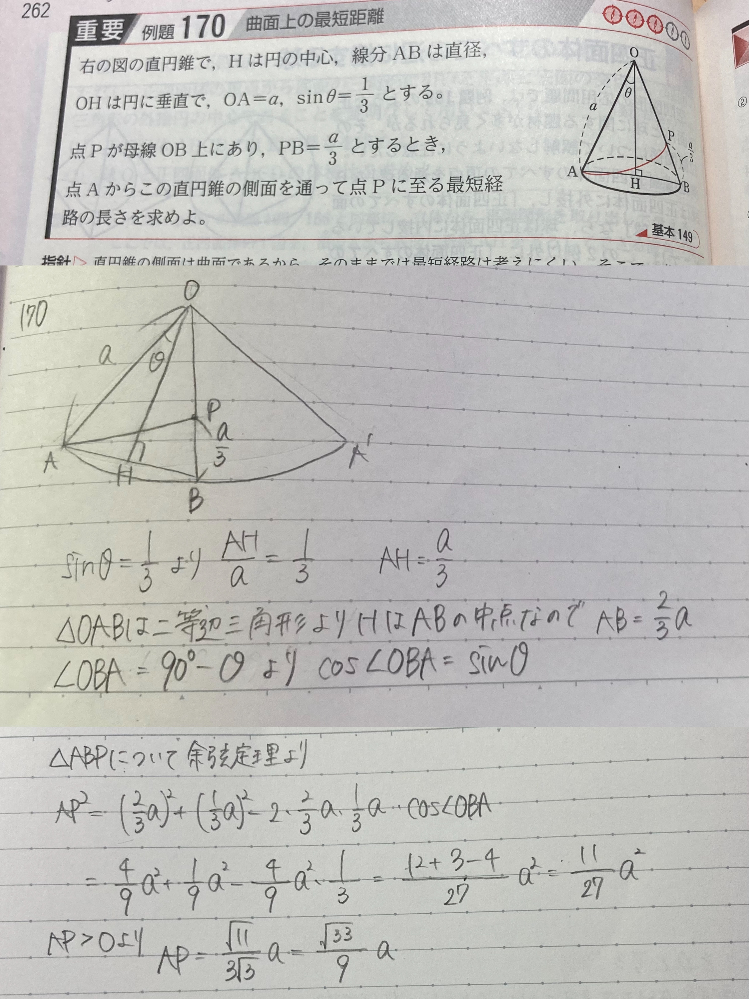 262
重要 例題170 曲面上の最短距離
右の図の直円錐で，Hは円の中心，線分ABは直径，
OHは円に垂直で，OA=a，sinθ=1/3 とする。
点Pが母線OB上にあり，PB=a/3 とするとき，
点Aからこの直円錐の側面を通って点Pに至る最短経
路の長さを求めよ。
O
θ
a
P
a/3
A
H
B
基本149
指針 直円錐の側面は曲面であるから，そのままでは最短経路は考えにくい。そこで
170
O
a
θ
P
a/3
A
H
B
A'
sinθ=1/3 より AH/a=1/3 AH=a/3
△OABは二等辺三角形よりHはABの中点なので AB=2/3a
∠OBA=90°-θ より cos∠OBA=sinθ
△ABPについて余弦定理より
AP²=(2/3a)²+(1/3a)²-2・2/3a・1/3a・cos∠OBA
=4/9a²+1/9a²-4/9a²・1/3=(12+3-4)/27 a²=11/27a²
AP>0より AP=√11/3√3 a=√33/9 a